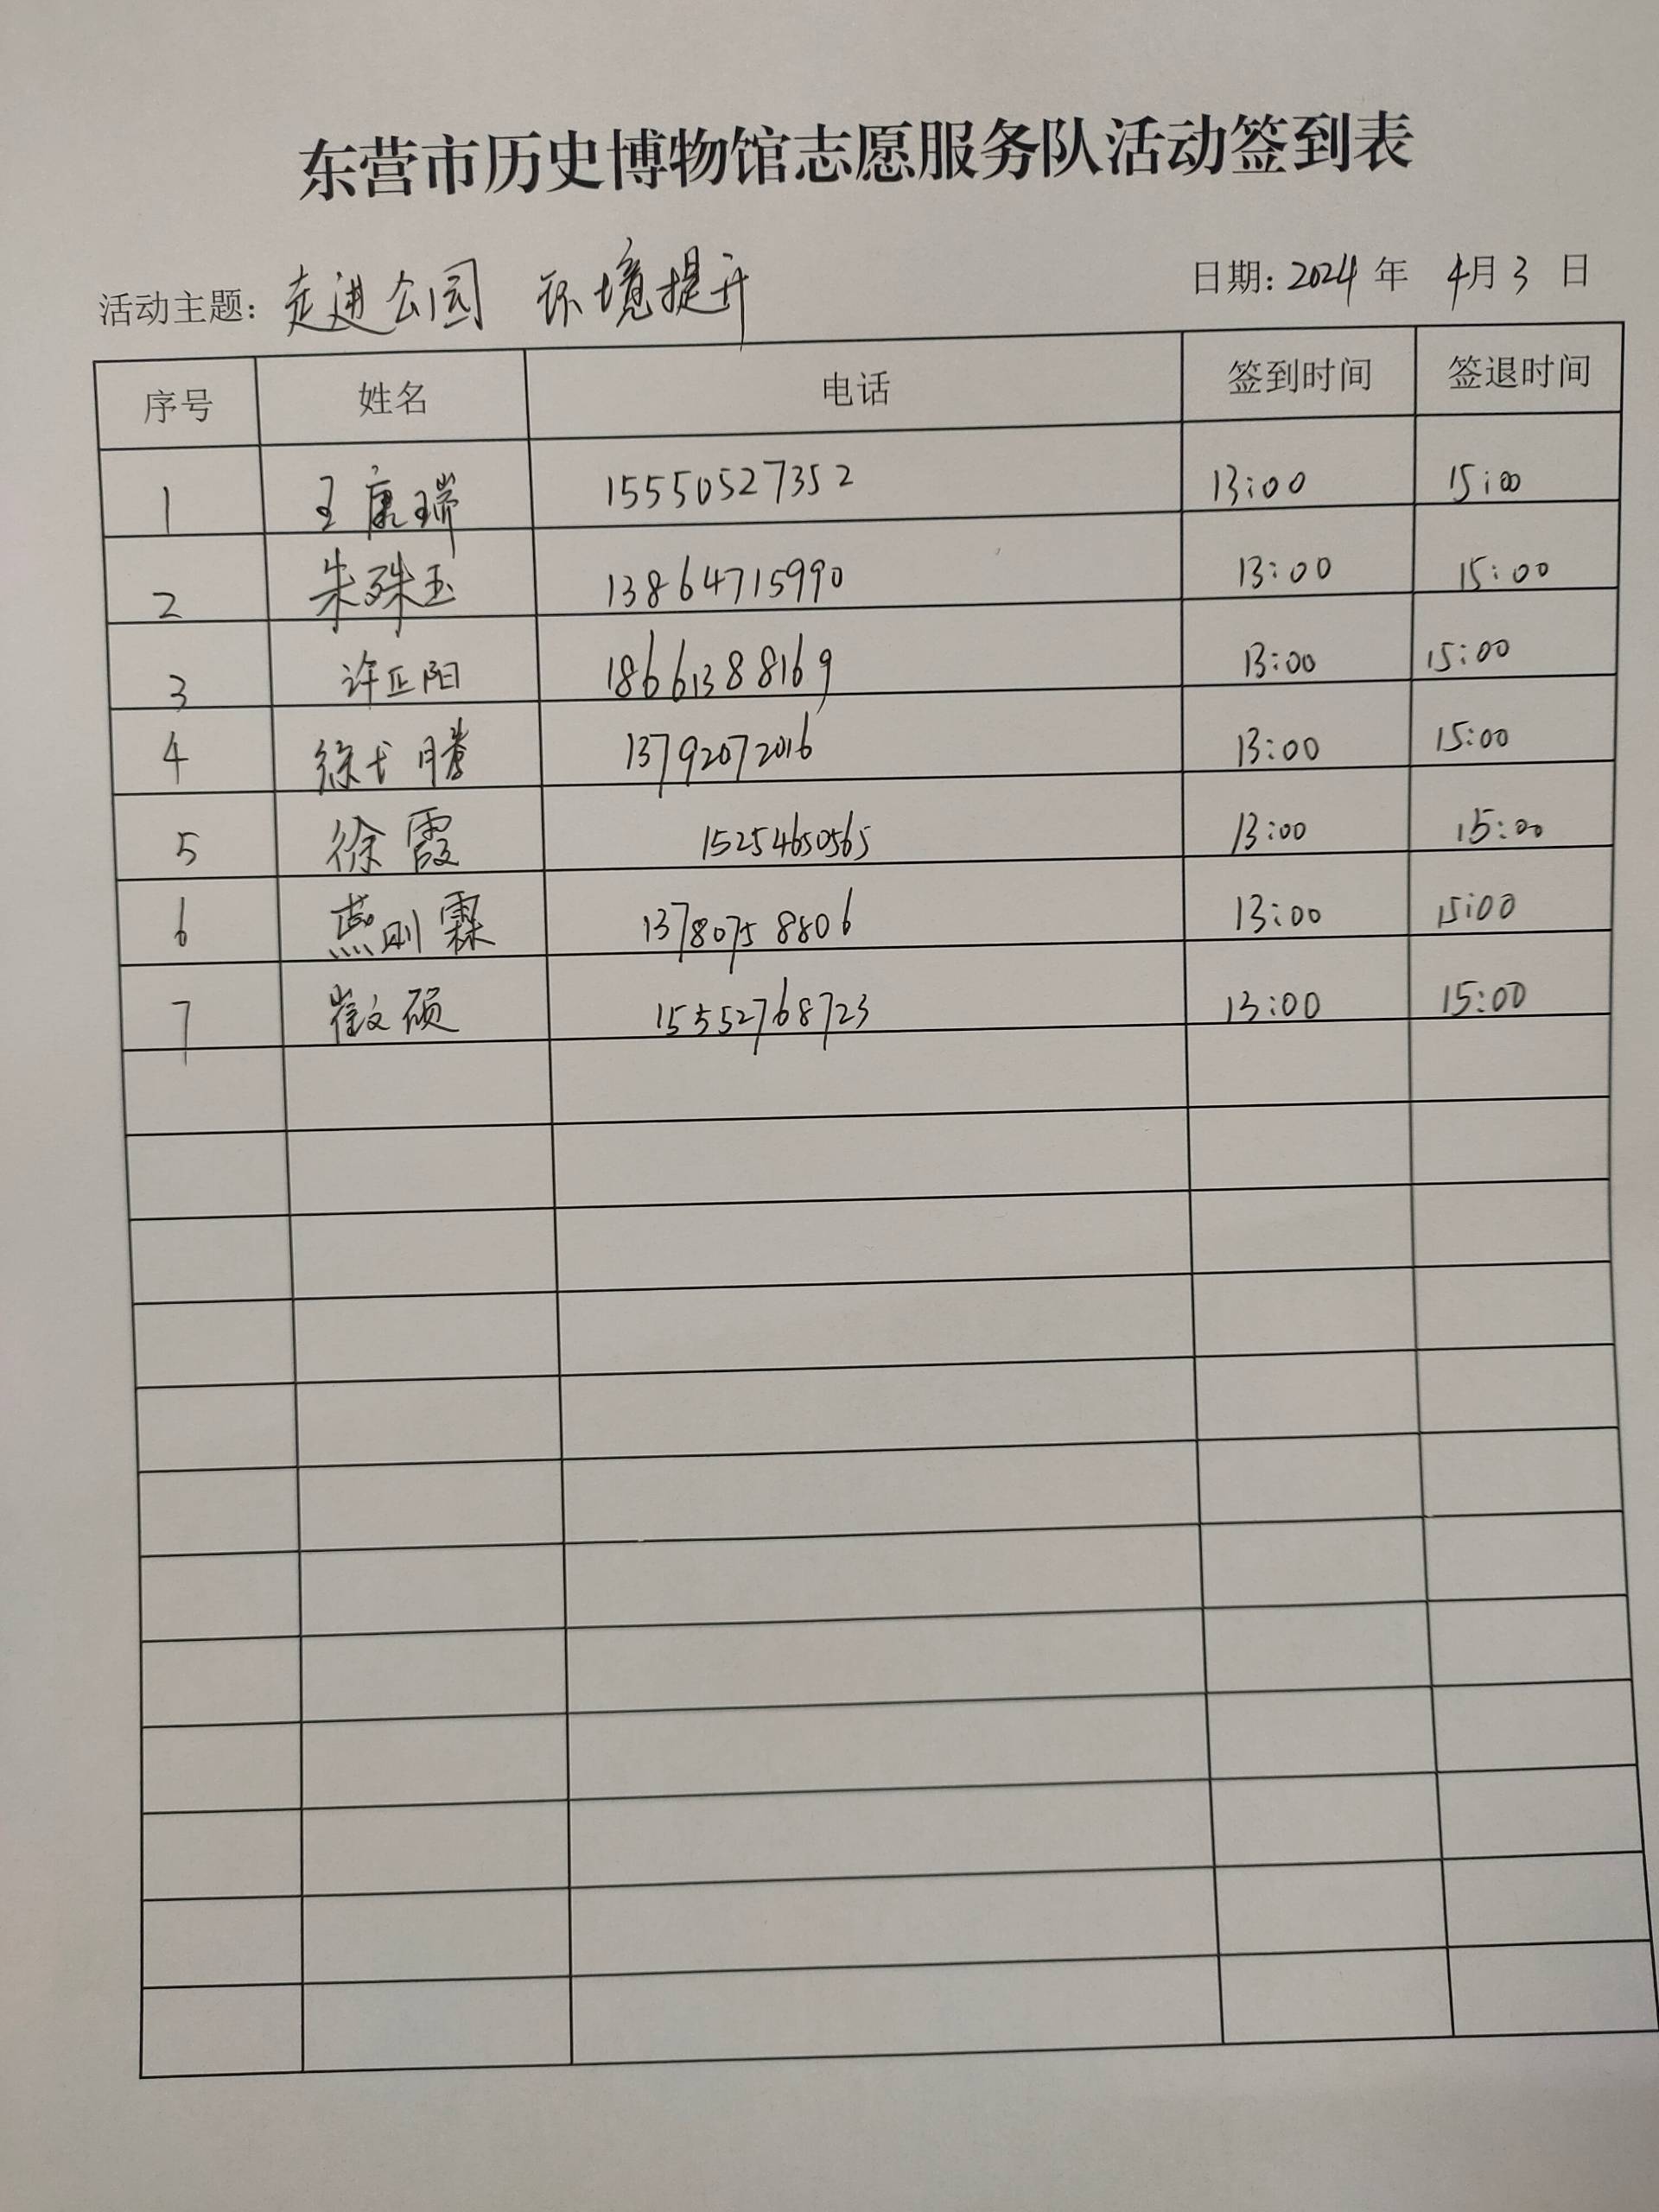 东营市历史博物馆志愿服务队活动签到表
活动主题: 走进公园 环境提升 日期: 2024 年 4月 3 日
序号 姓名 电话 签到时间 签退时间
1 王康瑞 15550527352 13:00 15:00
2 朱殊玉 13864715990 13:00 15:00
3 许正阳 18661388169 13:00 15:00
4 徐 13792072016 13:00 15:00
5 徐霞 15254650565 13:00 15:00
6 燕刚霖 13780758806 13:00 15:00
7 崔文硕 15552768723 13:00 15:00